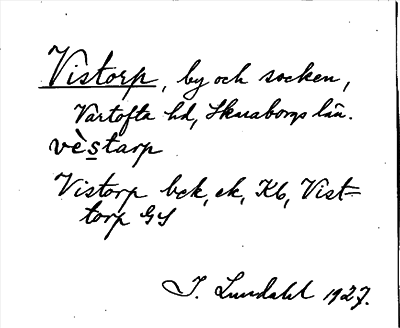 Vistorp, by och socken,
Vartofta hd, Skaraborgs län.
vès̲tarp
Vistorp bck, ek, Kb, Vist=
torp GS
I. Lundahl 1927.